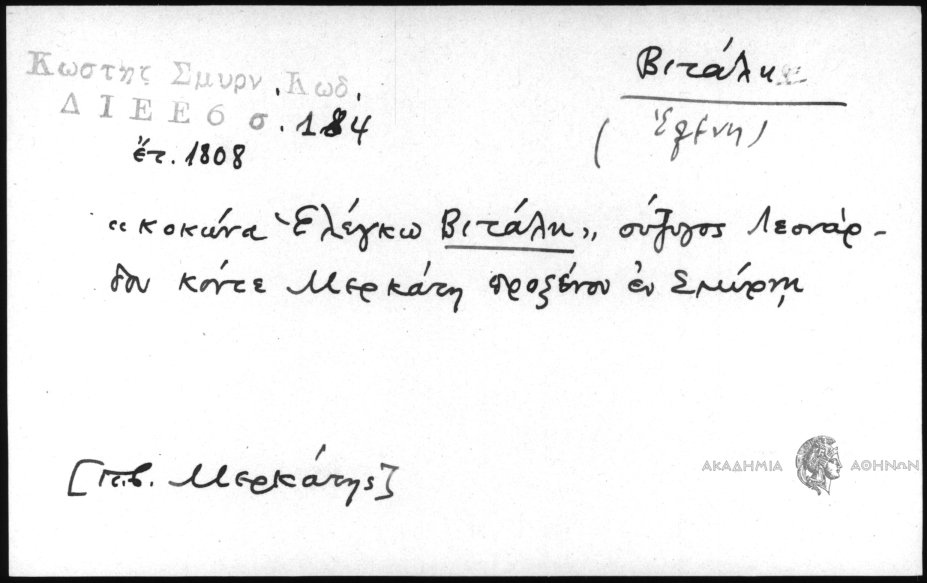 Κωστης Σμυρν. Κωδ.
ΔΙΕΕ 6 σ. 184
ἔτ. 1808
Βιτάλη
« κοκώνα Ἑλέγκω Βιτάλη», σύζυγος Λεονάρ-
δου κόντε Μερκάτη προξένου ἐν Σμύρνῃ
[π.β. Μερκάτης]
ΑΚΑΔΗΜΙΑ ΑΘΗΝΩΝ